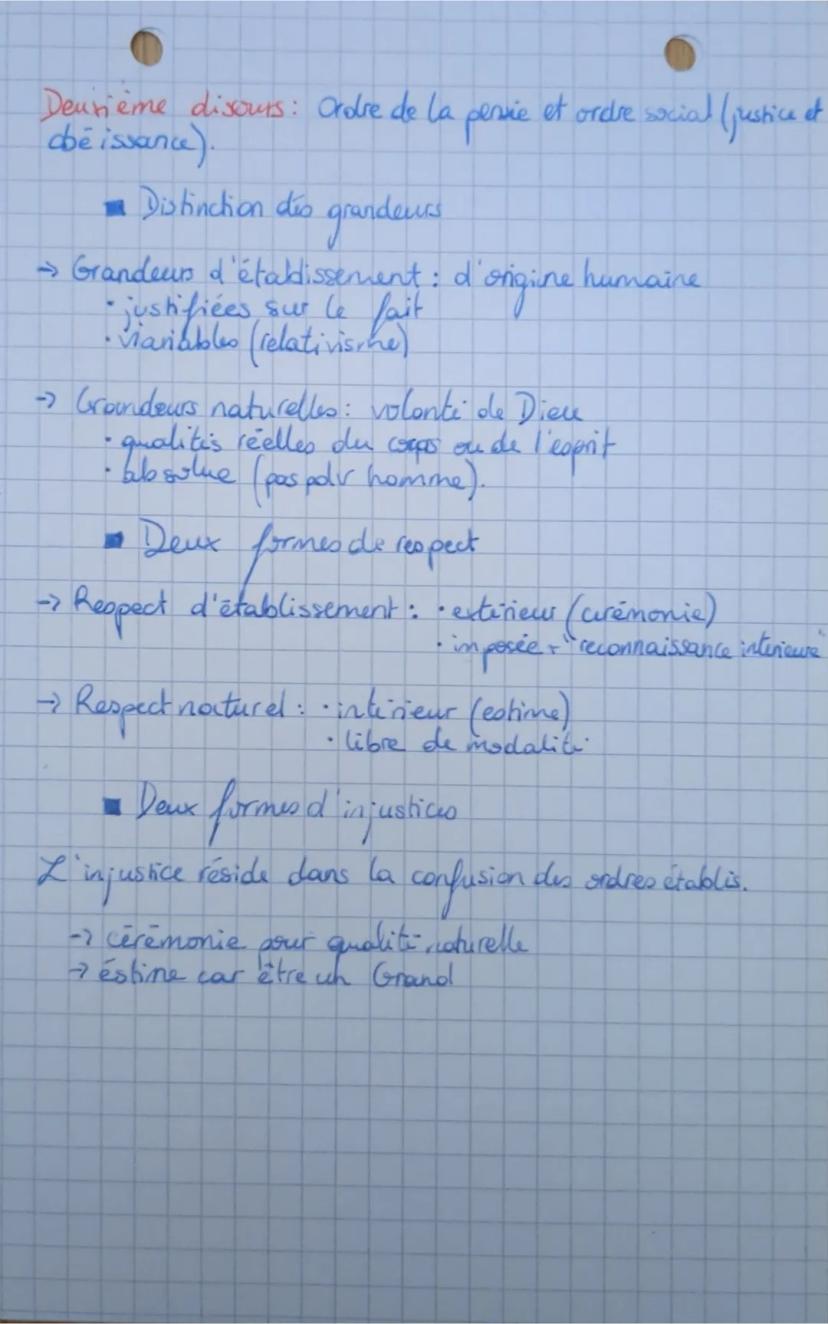 Deuxième discours : Ordre de la pensée et ordre social (justice et
obéissance).
■ Distinction des grandeurs
→ Grandeurs d'établissement : d'origine humaine
• justifiées sur le fait
• variables (relativisme)
→ Grandeurs naturelles : volonté de Dieu
• qualités réelles du corps ou de l'esprit
• absolue (pas pdv homme).
■ Deux formes de respect
→ Respect d'établissement : • extérieur (cérémonie)
• imposée + "reconnaissance intérieure
→ Respect naturel : • intérieur (estime)
• libre de modalité
■ Deux formes d'injustices
L'injustice réside dans la confusion des ordres établis.
→ cérémonie pour qualité naturelle
→ éstime car être un Grand